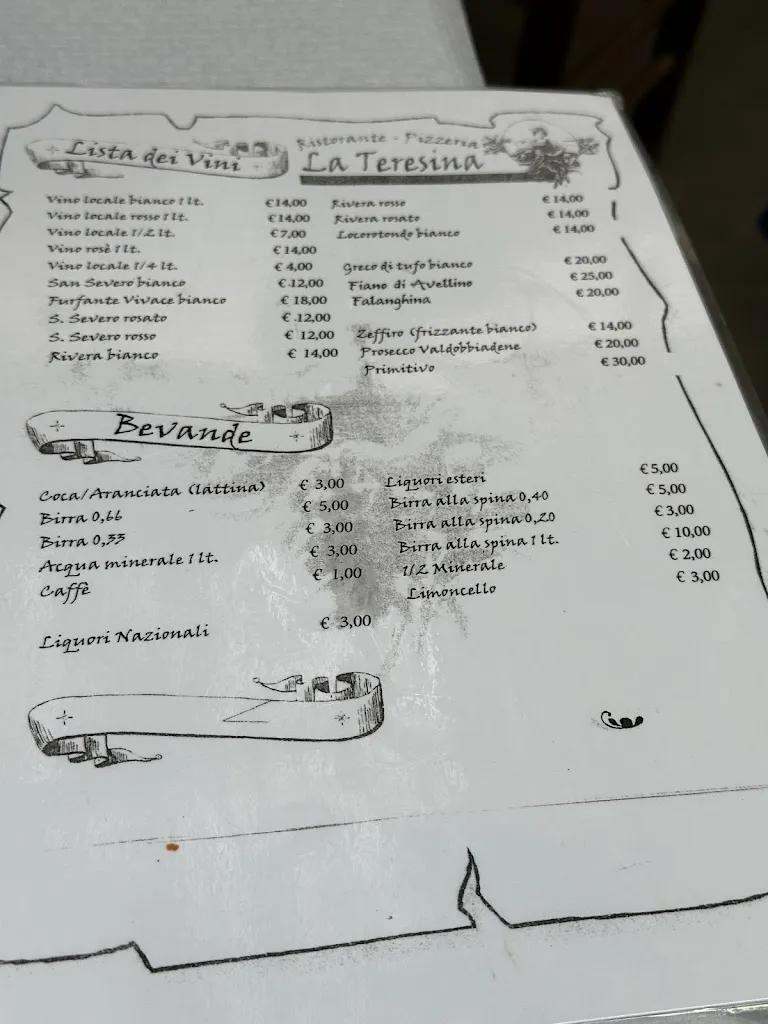 Lista dei Vini
Ristorante - Pizzeria
La Teresina
Vino locale bianco 1 lt. € 14,00
Vino locale rosso 1 lt. € 14,00
Vino locale 1/2 lt. € 7,00
Vino rosè 1 lt. € 14,00
Vino locale 1/4 lt. € 4,00
San Severo bianco € 12,00
Furfante Vivace bianco € 18,00
S. Severo rosato € 12,00
S. Severo rosso € 12,00
Rivera bianco € 14,00
Rivera rosso € 14,00
Rivera rosato € 14,00
Locorotondo bianco € 14,00
Greco di tufo bianco € 20,00
Fiano di Avellino € 25,00
Falanghina € 20,00
Zeffiro (frizzante bianco) € 14,00
Prosecco Valdobbiadene € 20,00
Primitivo € 30,00
Bevande
Coca/Aranciata (lattina) € 3,00
Birra 0,66 € 5,00
Birra 0,33 € 3,00
Acqua minerale 1 lt. € 3,00
Caffè € 1,00
Liquori Nazionali € 3,00
Liquori esteri € 5,00
Birra alla spina 0,40 € 5,00
Birra alla spina 0,20 € 3,00
Birra alla spina 1 lt. € 10,00
1/2 Minerale € 2,00
Limoncello € 3,00